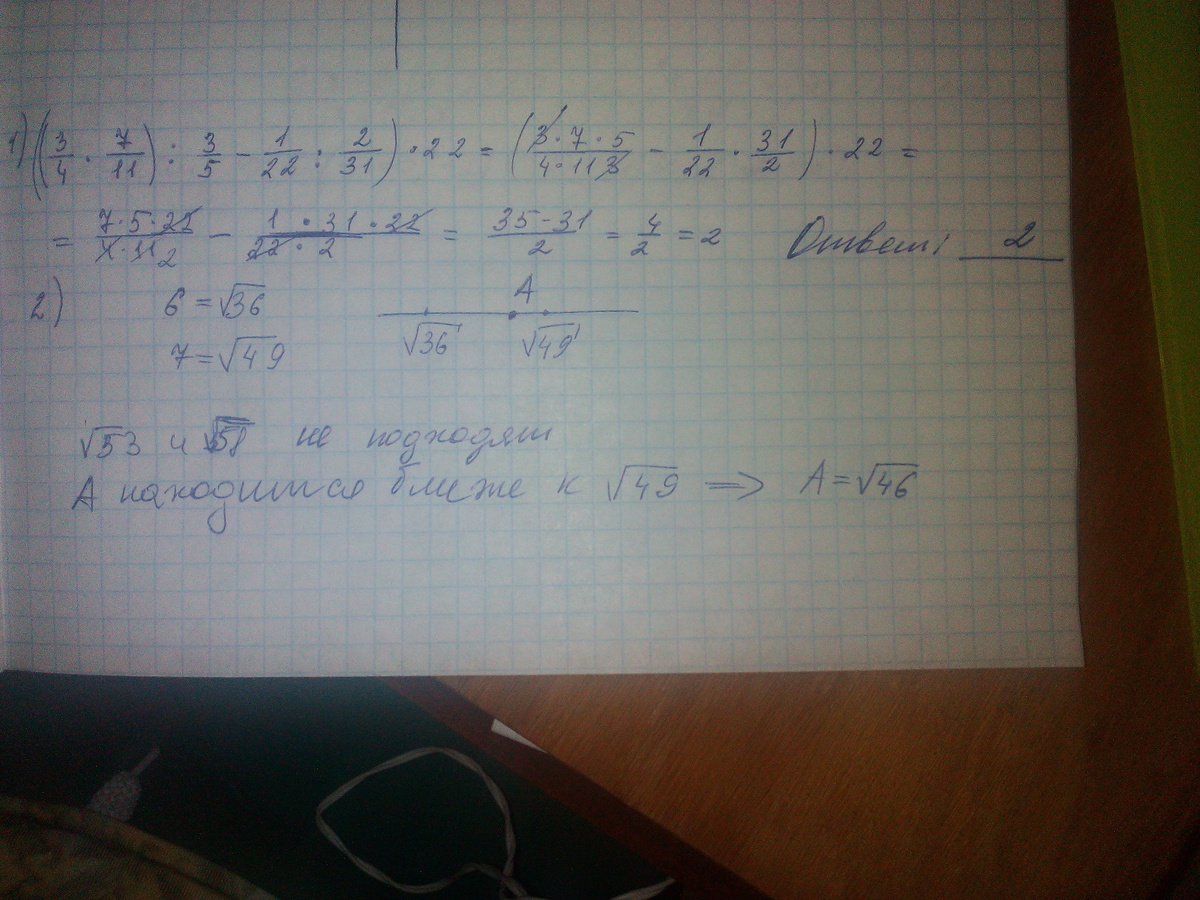 1) ((3/4 · 7/11) : 3/5 − 1/22 : 2/31) · 22 = (3·7·5/4·11·3 − 1/22 · 31/2) · 22 =
= 7·5·22/4·11 2 − 1·31·22/22·2 = 35−31/2 = 4/2 = 2 Ответ: 2
2) 6 = √36 A
7 = √49 √36 √49
√53 и √58 не подходят
А находится ближе к √49 => A = √46